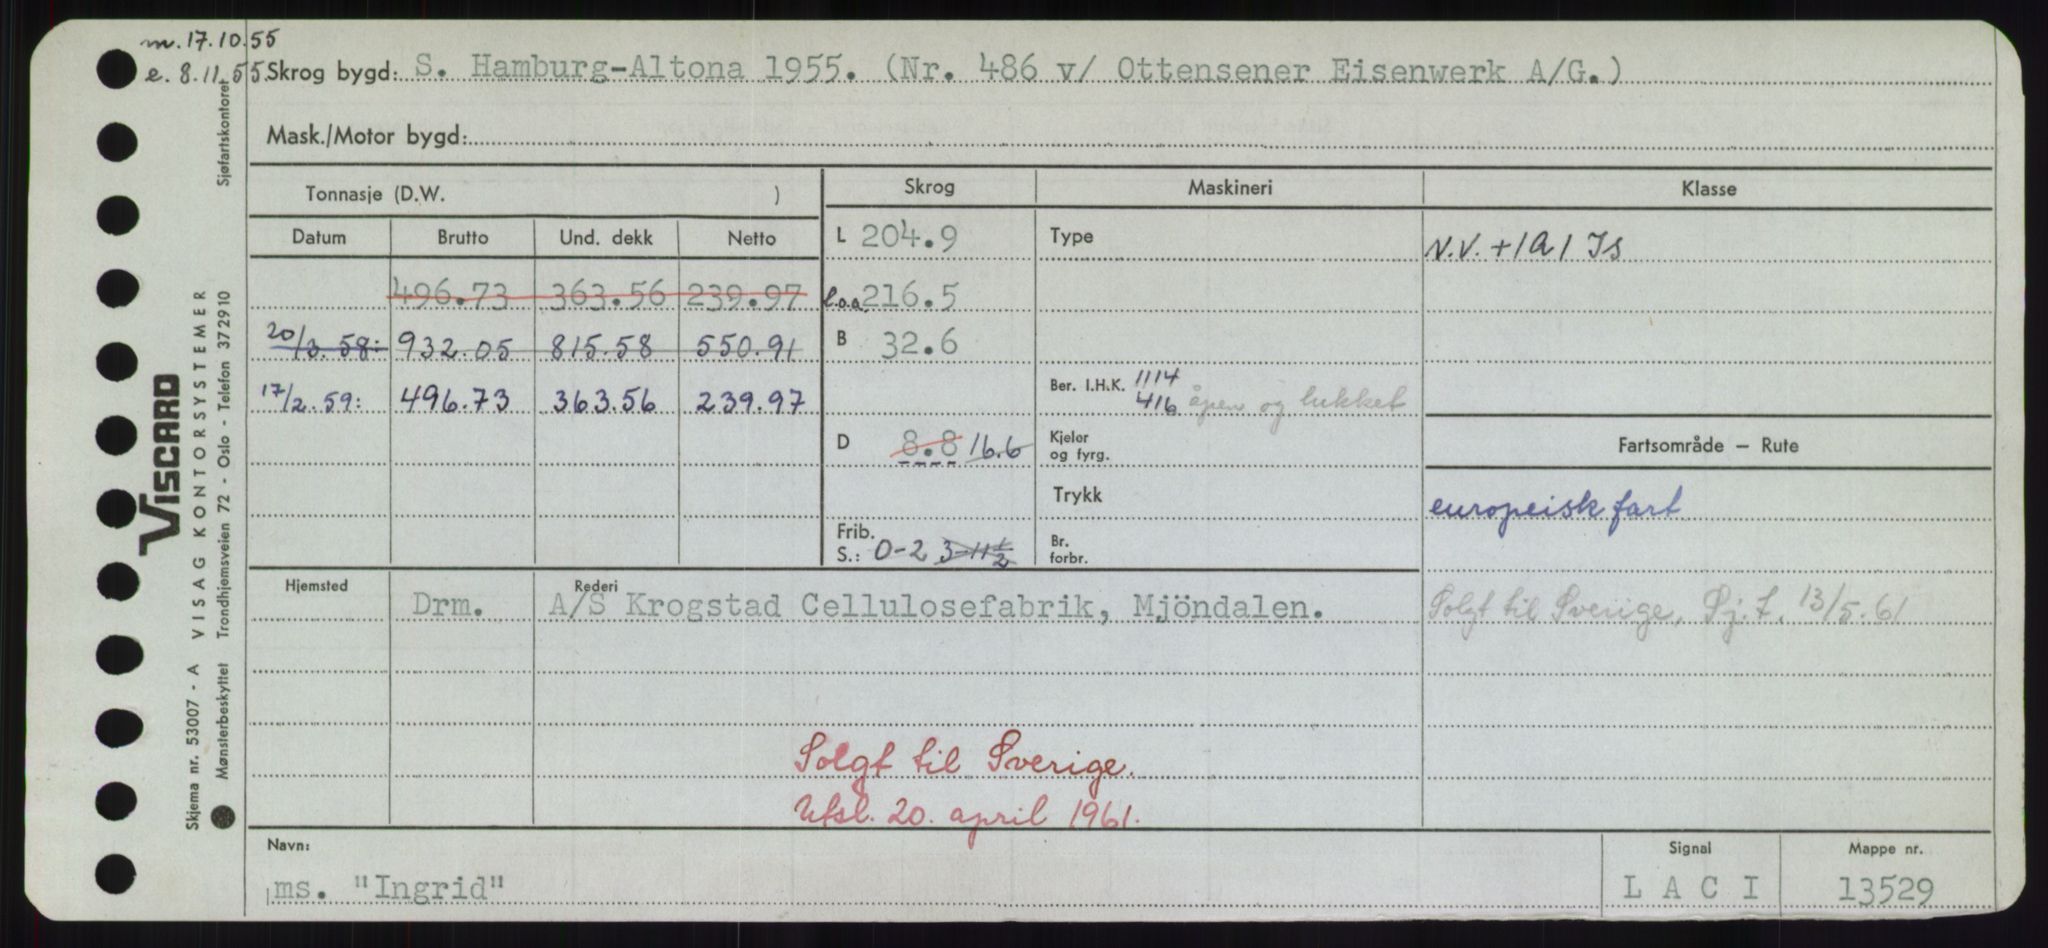 m. 17.10.55
e. 8.11.55.
Skrog bygd: S. Hamburg-Altona 1955. (Nr. 486 v/ Ottensener Eisenwerk A/G.)
Mask./Motor bygd:
Tonnasje (D.W. )
Skrog
Maskineri
Klasse
Datum Brutto Und. dekk Netto
L 204.9
Type
N.V. + 1A1 Is
496.73 363.56 239.97
l.o.a. 216.5
20/3.58: 932.05 815.58 550.91
B 32.6
17/2.59: 496.73 363.56 239.97
Ber. I.H.K. 1114
416 åpen og lukket
D 8.8 16.6
Kjeler
og fyrg.
Fartsområde – Rute
Trykk
europeisk fart
Frib.
S.: 0-2 3-11 1/2
Br.
forbr.
Hjemsted
Rederi
Drm. A/S Krogstad Cellulosefabrik, Mjöndalen.
Solgt til Sverige, Sj.t. 13/5.61
Solgt til Sverige.
Utsl. 20. april 1961.
Navn:
ms. "Ingrid"
Signal
L A C I
Mappe nr.
13529
Sjøfartskontoret
VISCARD
Skjema nr. 53007 - A VISAG KONTORSYSTEMER
Mønsterbeskyttet Trondhjemsveien 72 - Oslo - Telefon 372910